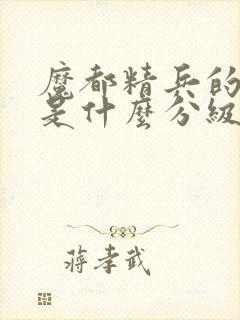 魔都精兵的
是什麼分級
蔣孝武